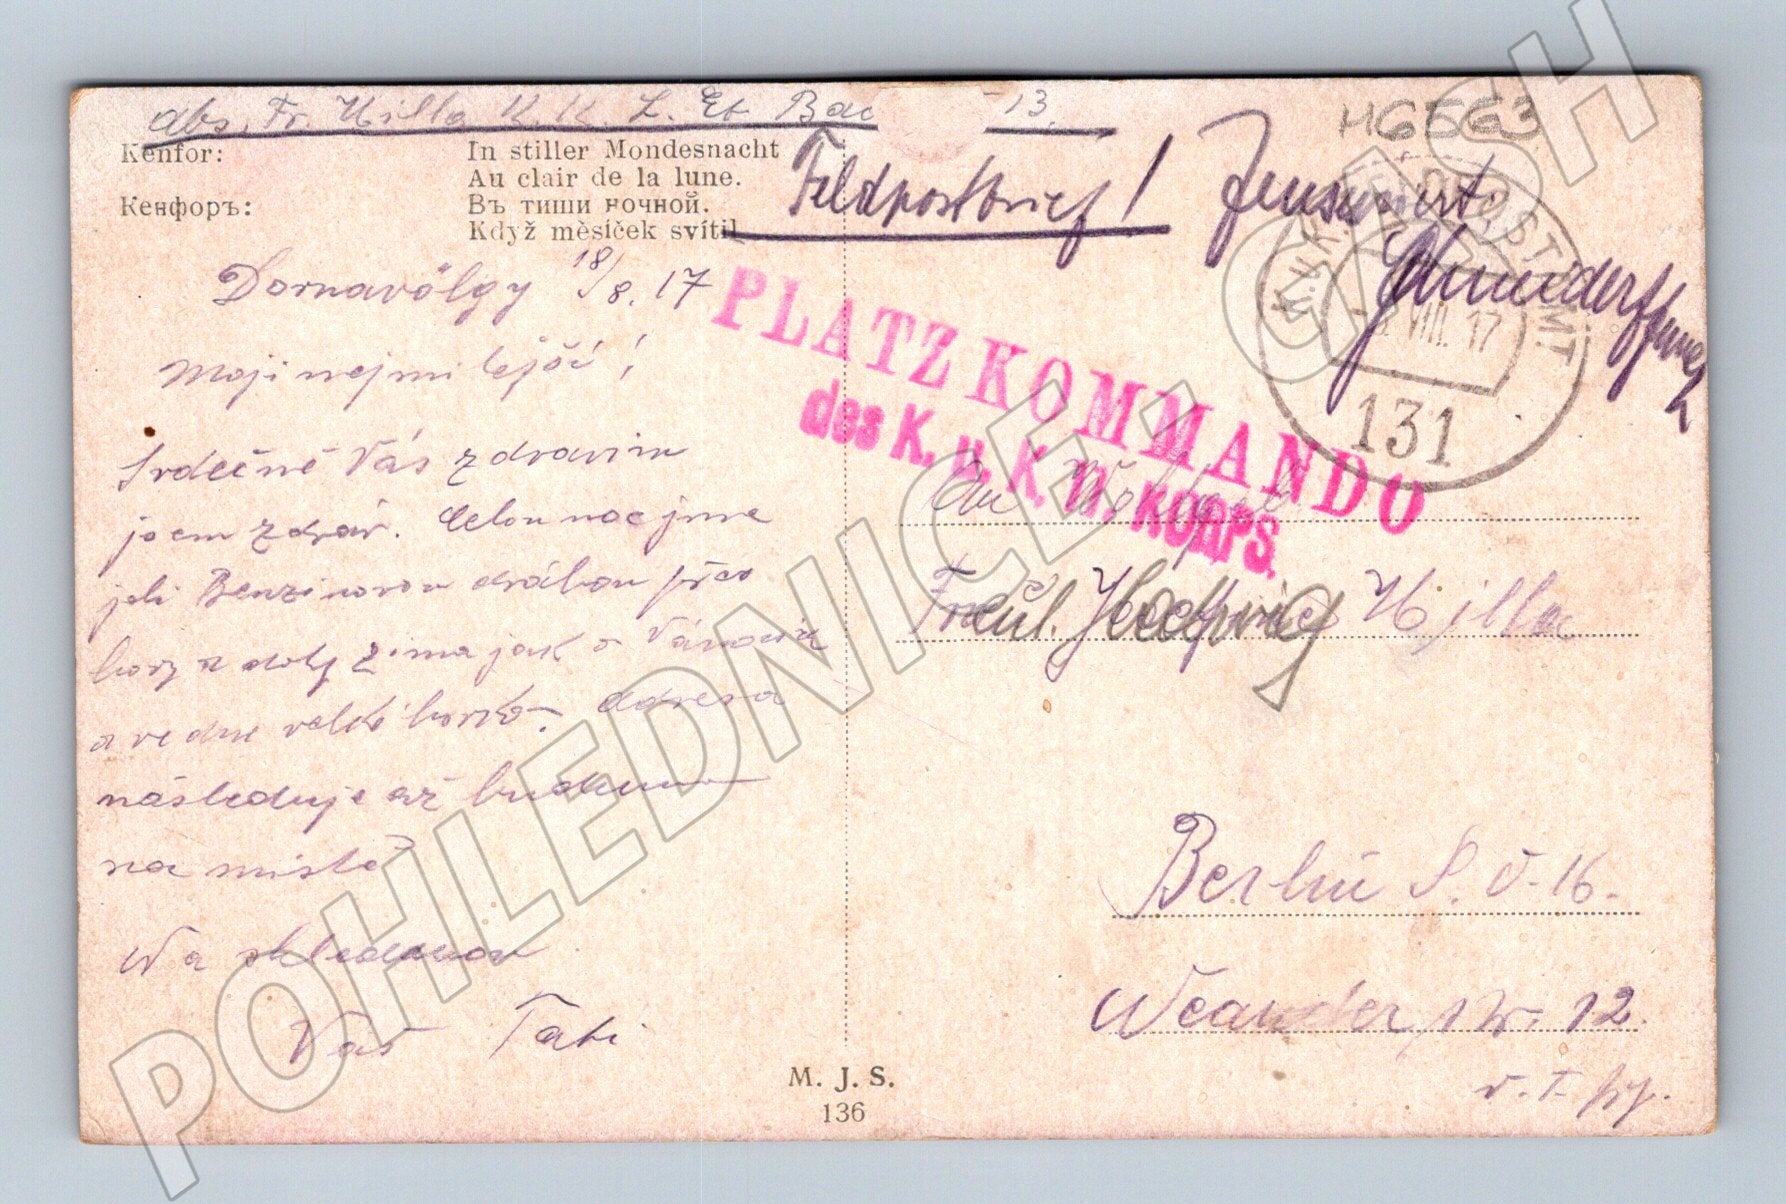 abs. Fr. Hilla K. K. L. Et. Bac 13.
H6563
Kenfor: In stiller Mondesnacht
Au clair de la lune.
Кенфоръ: Въ тиши ночной.
Když měsíček svítil
Feldpostbrief! Zensuriert.
K.u.K. FELDPOSTAMT
VIII. 17
131
PLATZKOMMANDO
des K. u. K. KORPS.
Dornavölgy 18/8. 17
Moji nejmilejší!
Srdečně Vás zdravím
jsem zdráv. Celou noc jsme
jeli Benzinovou dráhou přes
hory a doly zima jak o Vánocích
a ve dne velké horko. Adresa
následuje až budeme
na místě
Na shledanou
Váš Tati
An
Fräul. Hedwig Hilla
Berlin S. O. 16.
12.
M. J. S.
136
POHLEDNICE - CASH